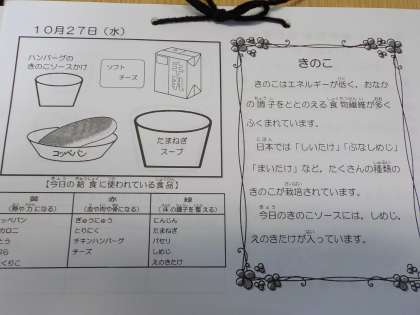 10月27日（水）
ハンバーグの
きのこソースかけ
ソフト
チーズ
コッペパン
たまねぎ
スープ
【今日の給食に使われている食品】
黄
赤
緑
（熱や力になる）
（血や肉や骨になる）
（体の調子を整える）
ぎゅうにゅう
にんじん
とりにく
たまねぎ
チキンハンバーグ
パセリ
チーズ
しめじ
えのきたけ
きのこ
きのこはエネルギーが低く、おなか
の調子をととのえる食物繊維が多く
ふくまれています。
日本では「しいたけ」「ぶなしめじ」
「まいたけ」など、たくさんの種類の
きのこが栽培されています。
今日のきのこソースには、しめじ、
えのきたけが入っています。